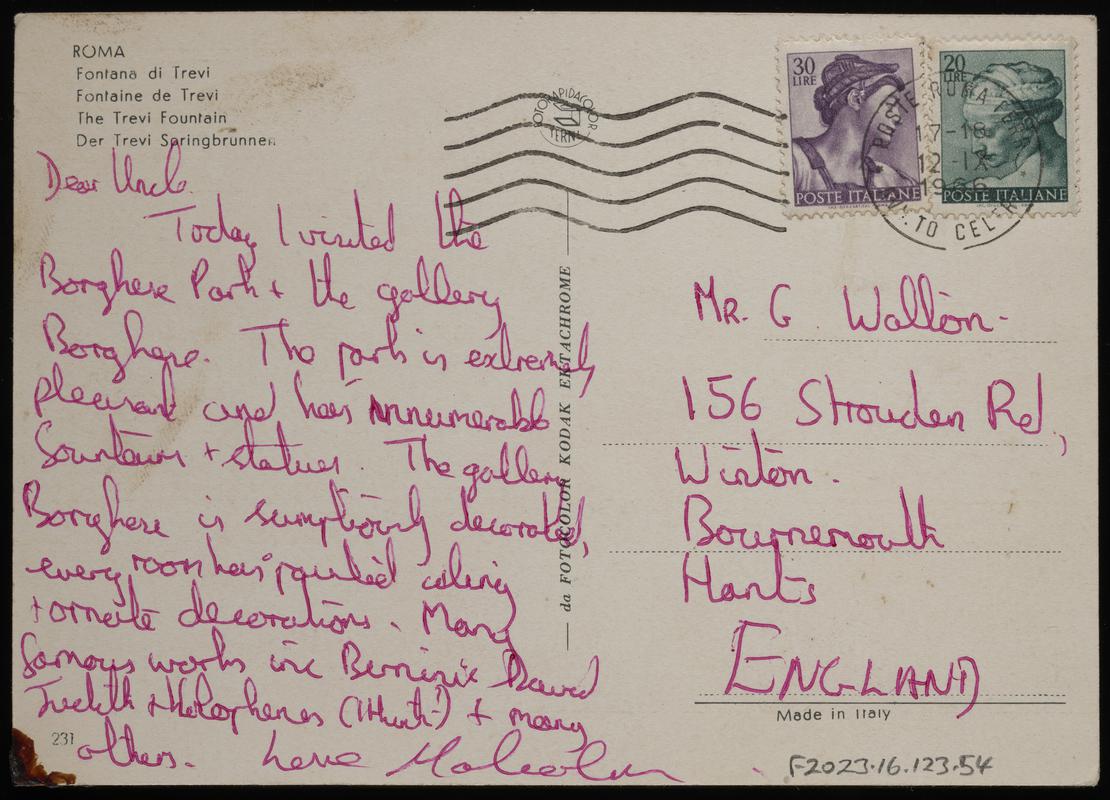 ROMA
Fontana di Trevi
Fontaine de Trevi
The Trevi Fountain
Der Trevi Springbrunnen
Dear Uncle
Today I visited the
Borghese Park + the gallery
Borghese. The park is extremely
pleasant and has innumerable
fountains + statues. The gallery
Borghese is sumptiously decorated,
every room has painted ceiling
+ ornate decorations. Many
famous works inc Bernini's David
Judith + Holophenes (I think!) + many
others. Love Malcolm
231
FOTORAPIDACOLOR
TERNI
da FOTOCOLOR KODAK EKTACHROME
30
LIRE
POSTE ITALIANE
20
LIRE
POSTE ITALIANE
POSTE ROMA
17-18
12-IX
1966
Mr. G. Wallon.
156 Strouden Rd,
Winton.
Bournemouth
Hants
ENGLAND
Made in Italy
F2023.16.123.54